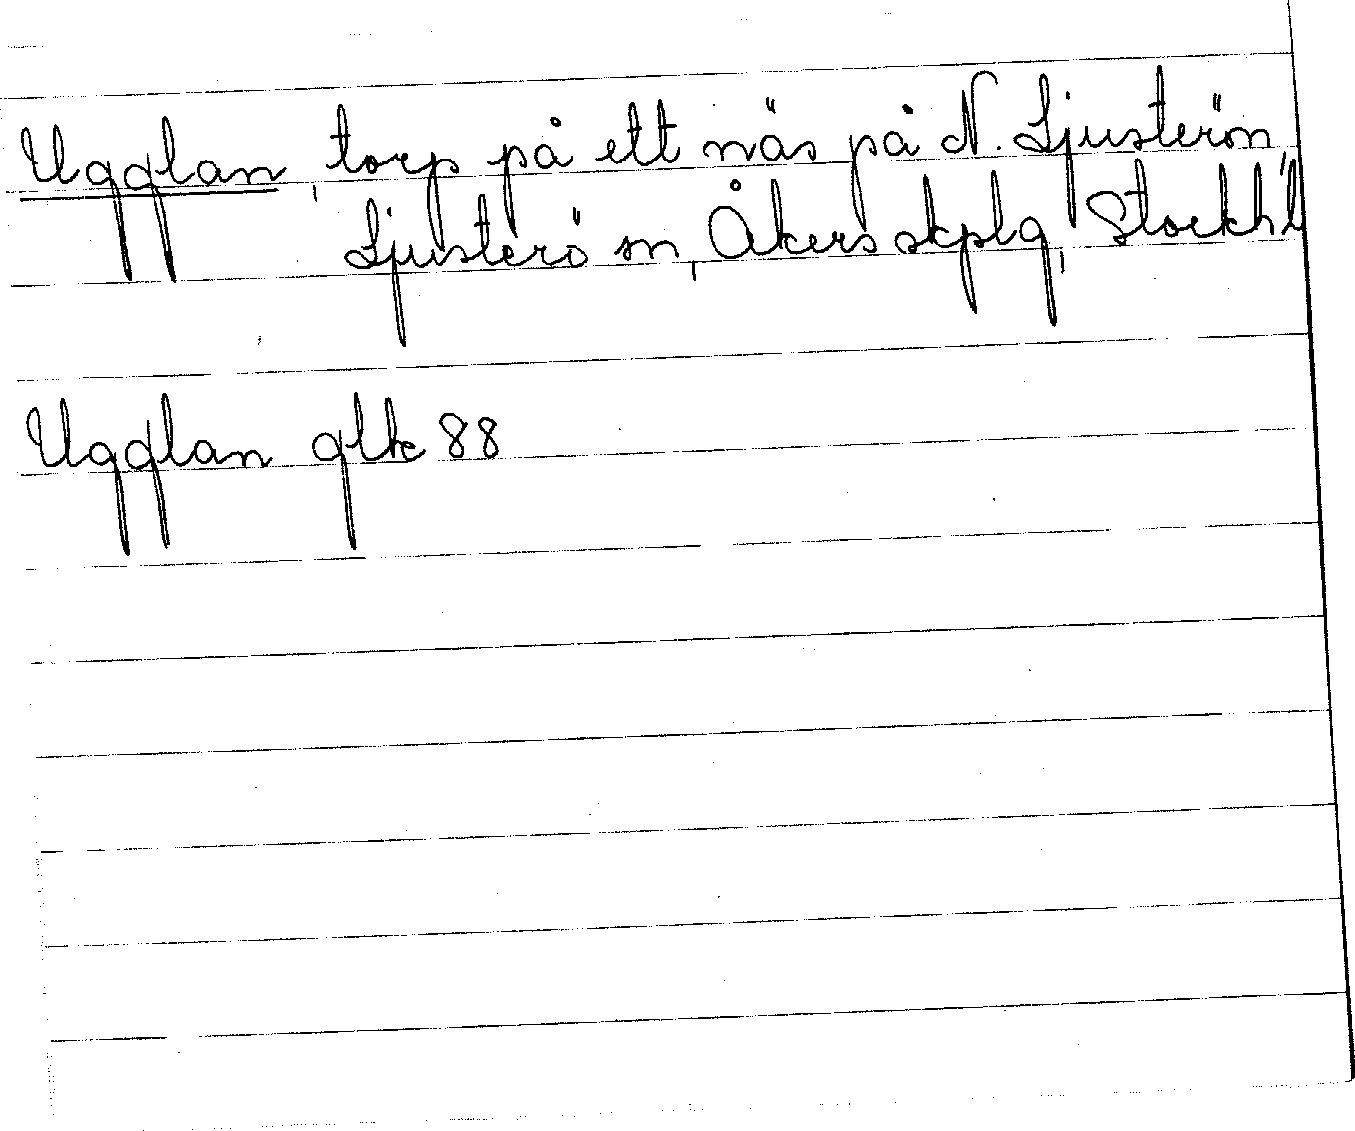 Ugglan, torp på ett näs på N. Ljusterön,
Ljusterö sn, Åkers skplg, Stockh. l
Ugglan glk 88